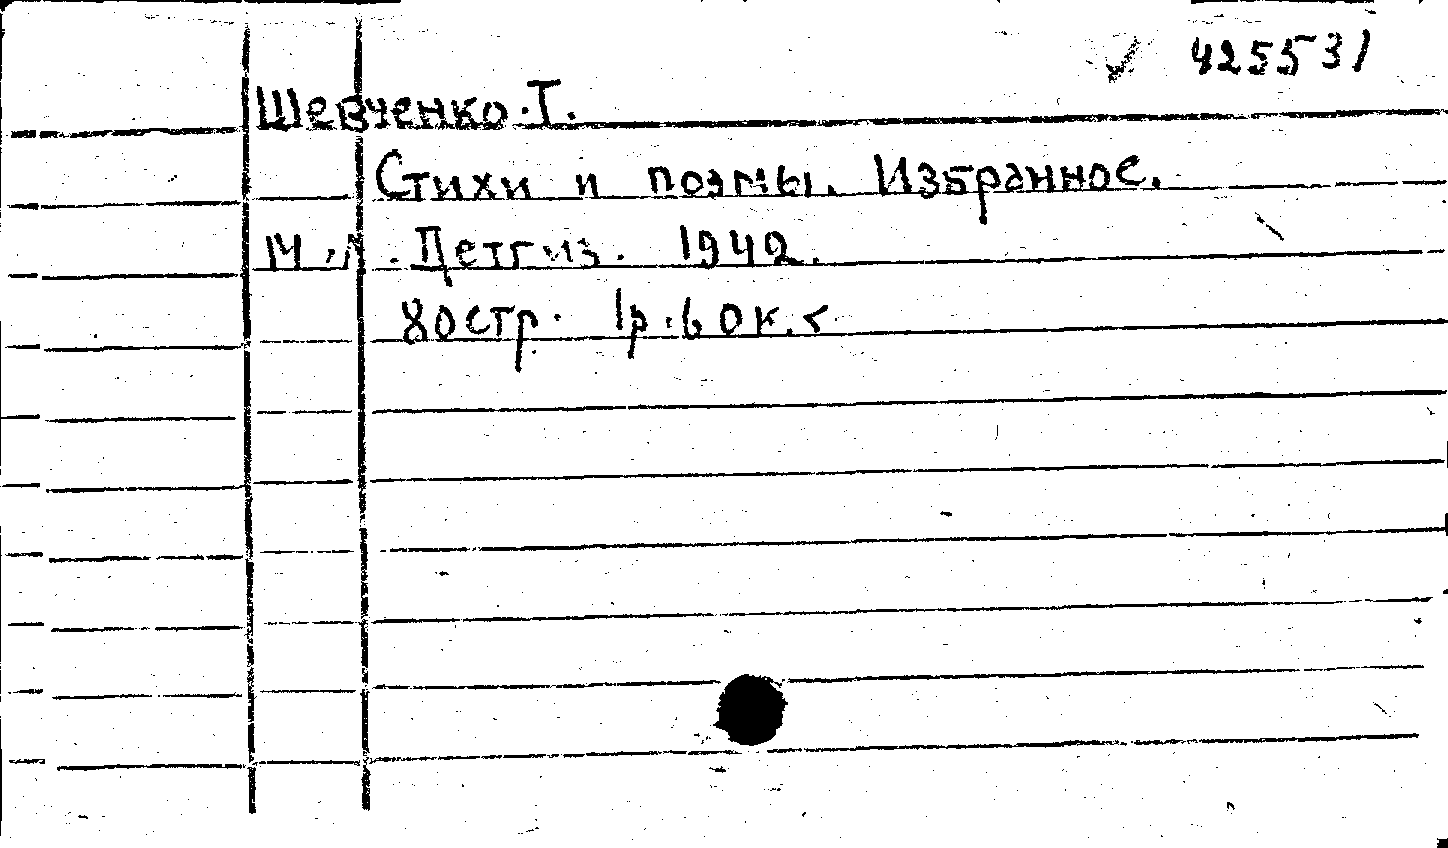 425531
Шевченко. Т.
Стихи и поэмы. Избранное.
М, Л. Детгиз. 1942.
80стр. 1р. 60к.